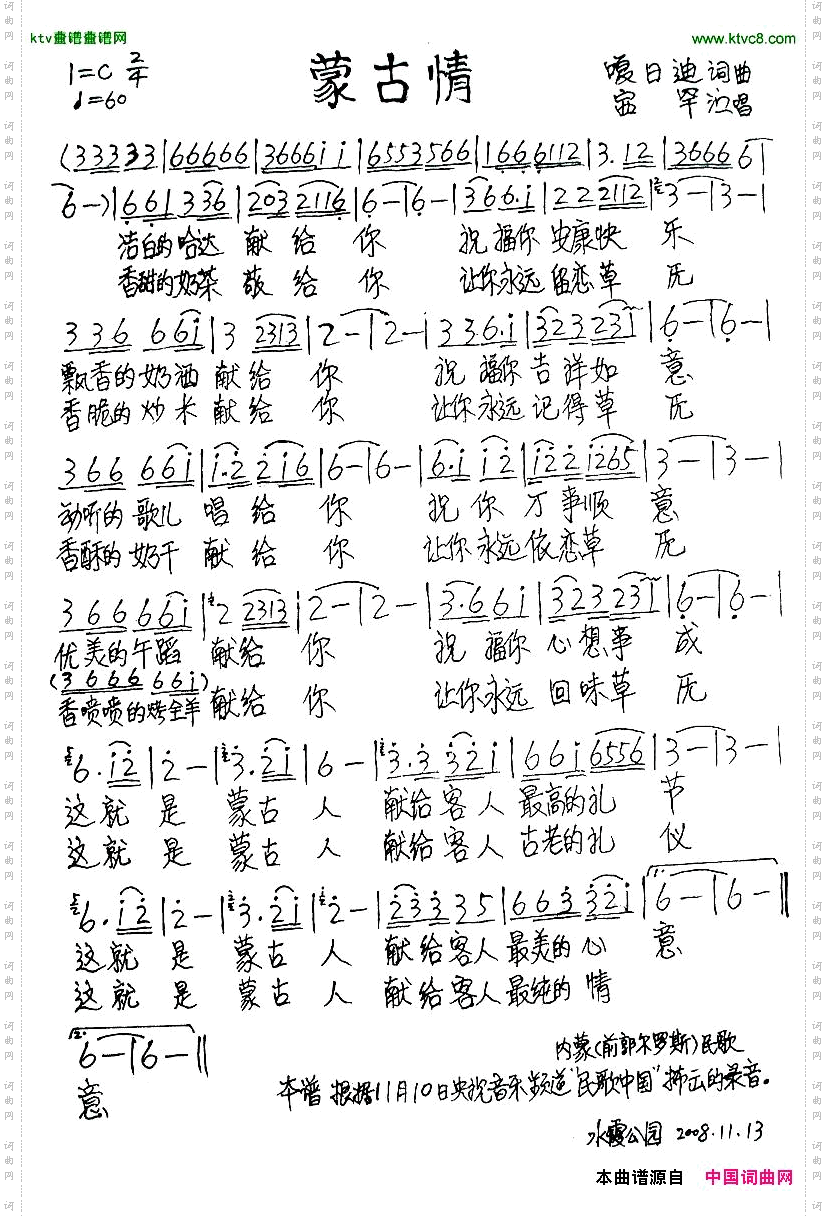 ktv盡镨盡镨网
www.ktvc8.com
1=C 2/4
♩=60
蒙古情
嘎日迪词曲
宝罕演唱
(33333|66666|3666i i|6553566|1666112|3.12|3666 6|
6-)|661336|2032116|6-|6-|366.i|222112|3-|3-|
洁白的哈达 献给 你 祝福你安康快 乐
香甜的奶茶 敬给 你 让你永远留恋草 原
336 66i|3 2313|2-|2-|336.i|323231|6-|6-|
飘香的奶酒 献给 你 祝 福你吉祥如 意
香脆的炒米 献给 你 让你永远记得草 原
366 66i|i.2 2i6|6-|6-|6.i i2|i22 i265|3-|3-|
动听的歌儿 唱给 你 祝你 万事顺 意
香酥的奶干 献给 你 让你永远依恋草 原
3666 66i|2 2313|2-|2-|3.66i|323231|6-|6-|
优美的午蹈 献给 你 祝 福你心想事 成
(3666 66i)
香喷喷的烤全羊 献给 你 让你永远回味草 原
6.i2|2-|3.2i|6-|3.3 32i|66i 6556|3-|3-|
这就 是 蒙古 人 献给客人 最高的礼 节
这就 是 蒙古 人 献给客人 古老的礼 仪
6.i2|2-|3.2i|2-|23335|663 32i|1.6-|6-‖
这就 是 蒙古 人 献给客人 最美的心 意
这就 是 蒙古 人 献给客人 最纯的情
2.6-|6-‖
意
内蒙(前郭尔罗斯)民歌
本谱根据11月10日央视音乐频道"民歌中国"播出的录音。
水霞公园 2008.11.13
本曲谱源自 中国词曲网
词曲网